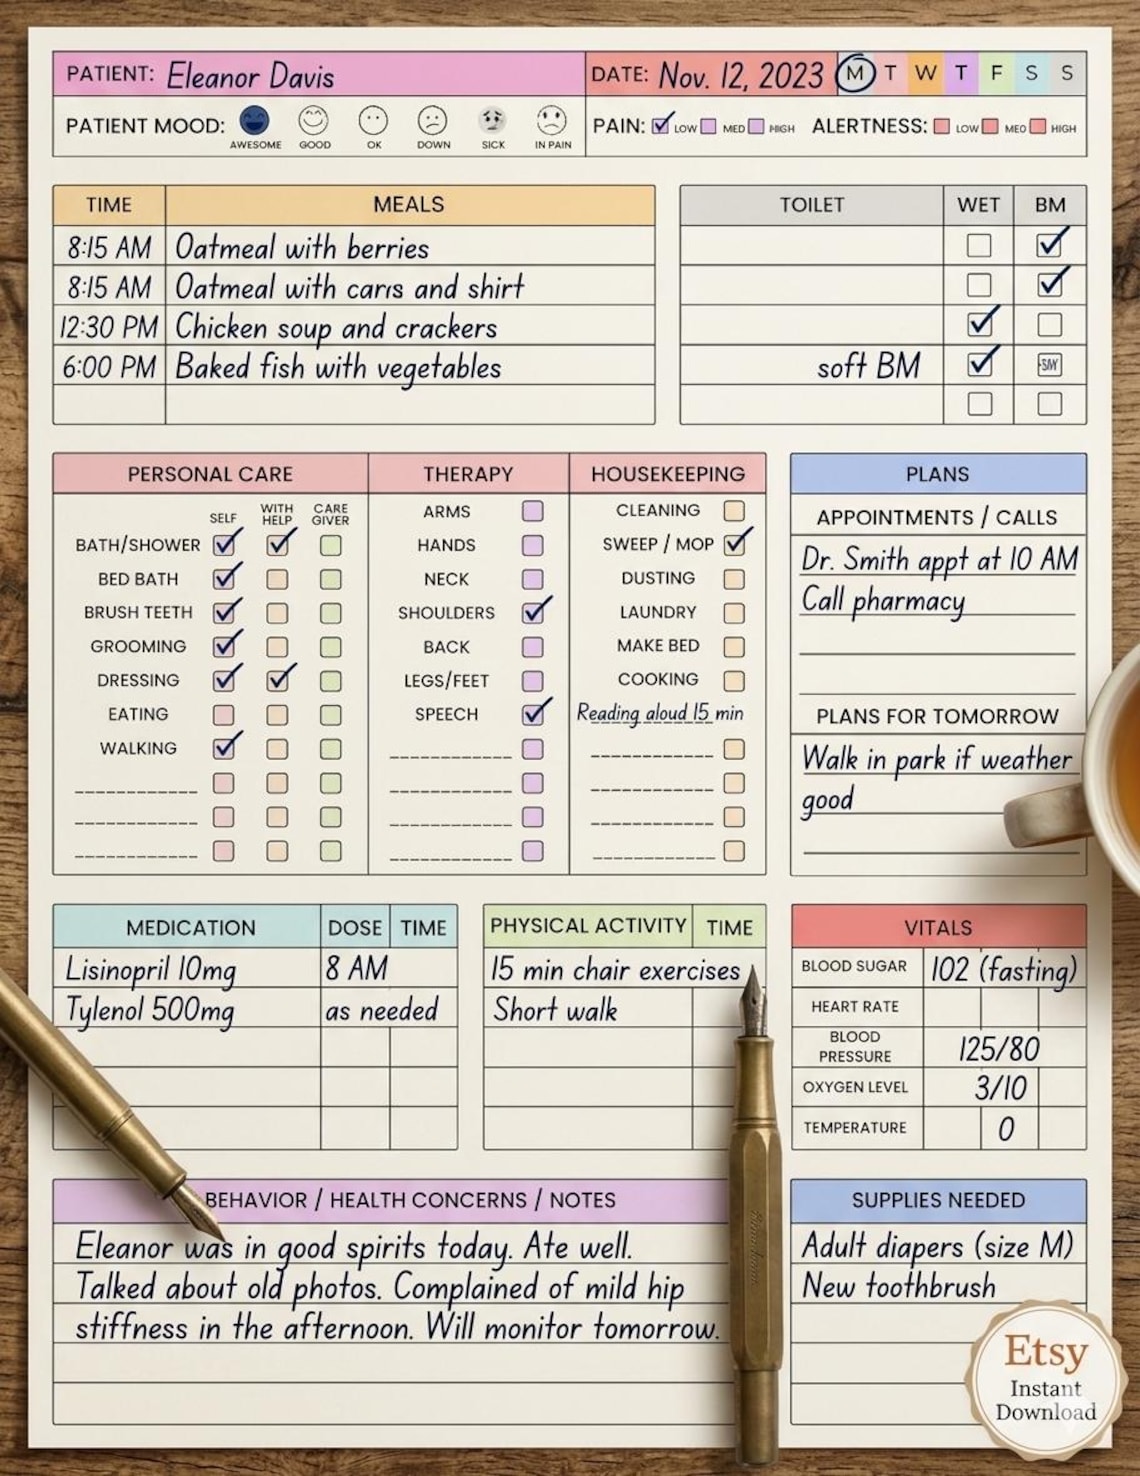 PATIENT: Eleanor Davis
DATE: Nov. 12, 2023 M T W T F S S
PATIENT MOOD: AWESOME GOOD OK DOWN SICK IN PAIN
PAIN: LOW MED HIGH ALERTNESS: LOW MED HIGH
TIME MEALS
8:15 AM Oatmeal with berries
8:15 AM Oatmeal with and shirt
12:30 PM Chicken soup and crackers
6:00 PM Baked fish with vegetables
TOILET WET BM
soft BM
PERSONAL CARE
SELF WITH HELP CARE GIVER
BATH/SHOWER
BED BATH
BRUSH TEETH
GROOMING
DRESSING
EATING
WALKING
THERAPY
ARMS
HANDS
NECK
SHOULDERS
BACK
LEGS/FEET
SPEECH
HOUSEKEEPING
CLEANING
SWEEP / MOP
DUSTING
LAUNDRY
MAKE BED
COOKING
Reading aloud 15 min
PLANS
APPOINTMENTS / CALLS
Dr. Smith appt at 10 AM
Call pharmacy
PLANS FOR TOMORROW
Walk in park if weather
good
MEDICATION DOSE TIME
Lisinopril 10mg 8 AM
Tylenol 500mg as needed
PHYSICAL ACTIVITY TIME
15 min chair exercises
Short walk
VITALS
BLOOD SUGAR 102 (fasting)
HEART RATE
BLOOD
PRESSURE 125/80
OXYGEN LEVEL 3/10
TEMPERATURE 0
BEHAVIOR / HEALTH CONCERNS / NOTES
Eleanor was in good spirits today. Ate well.
Talked about old photos. Complained of mild hip
stiffness in the afternoon. Will monitor tomorrow.
SUPPLIES NEEDED
Adult diapers (size M)
New toothbrush
Etsy
Instant
Download